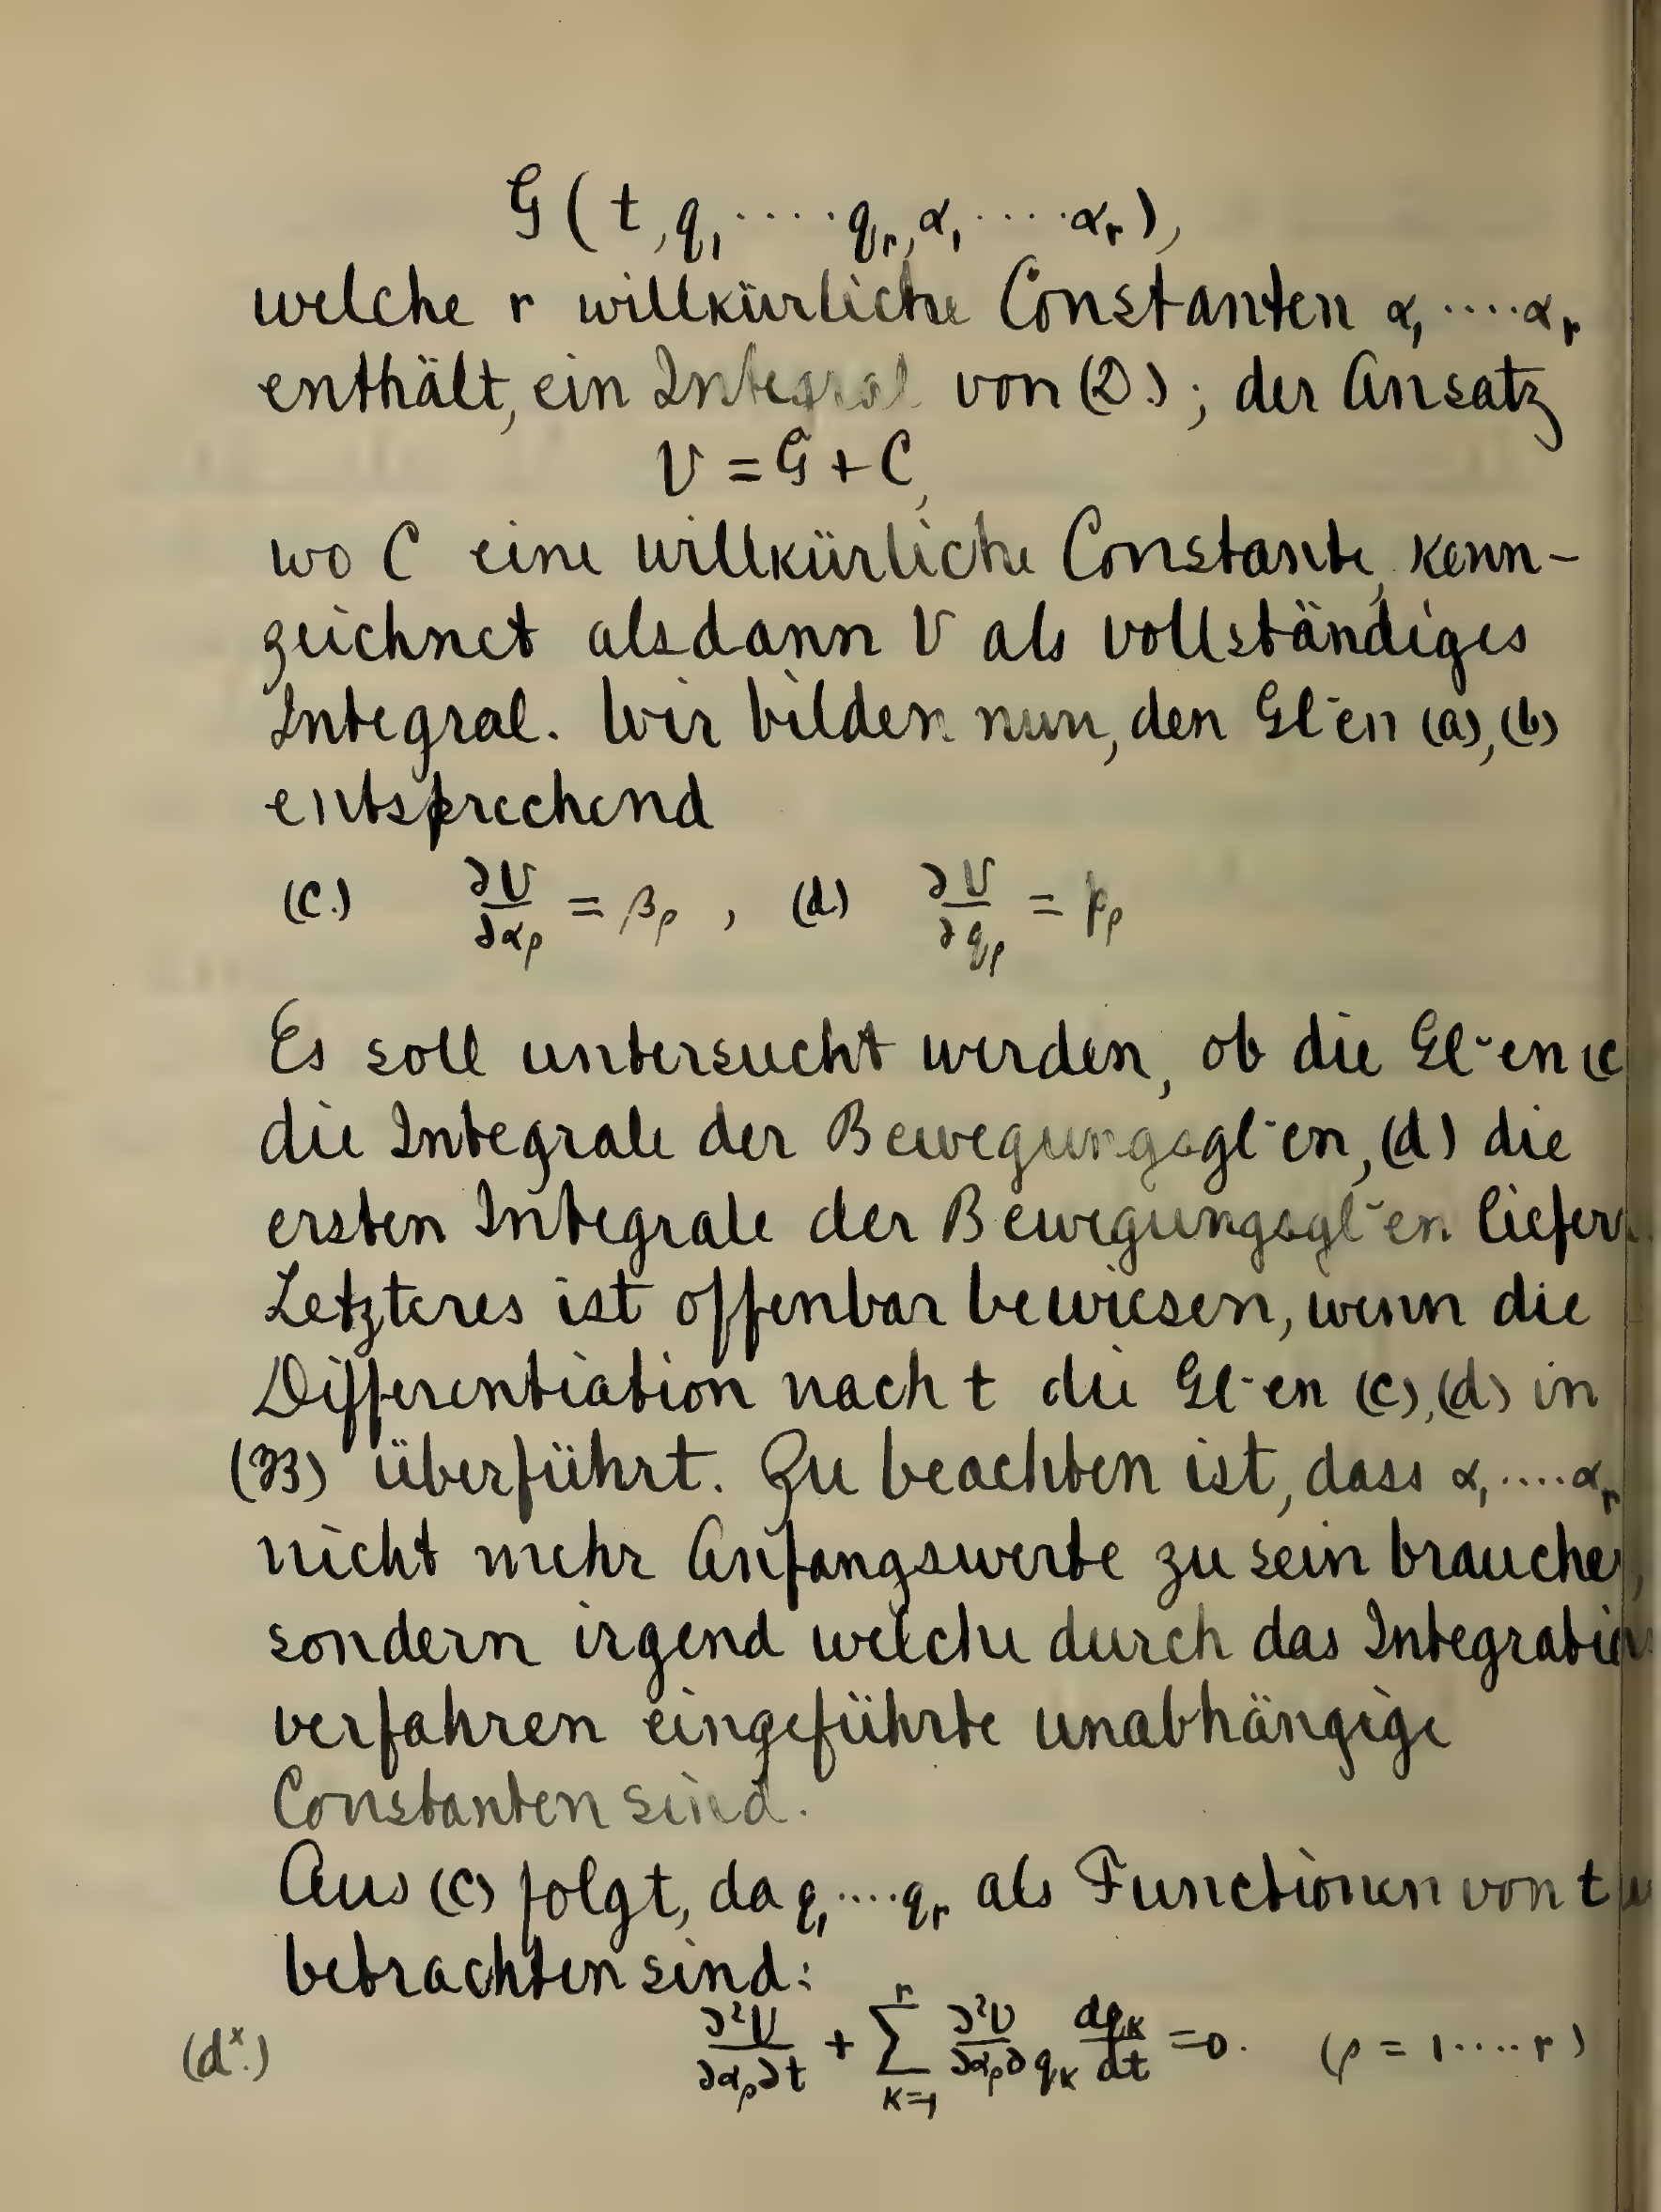 G(t, q₁ ..... qᵣ, α₁ ..... αᵣ),
welche r willkürliche Constanten α₁ ..... αᵣ
enthält, ein Integral von (D.); der Ansatz
V = G + C,
wo C eine willkürliche Constante, kenn-
zeichnet alsdann V als vollständiges
Integral. Wir bilden nun, den Gl-en (a), (b)
entsprechend
(c.) ∂V/∂αρ = βρ , (d.) ∂V/∂qρ = pρ
Es soll untersucht werden, ob die Gl-en (c
die Integrale der Bewegungsgl-en, (d) die
ersten Integrale der Bewegungsgl-en liefern.
Letzteres ist offenbar bewiesen, wenn die
Differentiation nach t die Gl-en (c), (d) in
(B) überführt. Zu beachten ist, dass α₁ ..... αᵣ
nicht mehr Anfangswerte zu sein brauchen,
sondern irgend welche durch das Integrations
verfahren eingeführte unabhängige
Constanten sind.
Aus (c) folgt, da q₁ .... qᵣ als Functionen von t
betrachten sind:
(dˣ.) ∂²V/∂αρ∂t + Σ_{κ=1}^{r} ∂²V/∂αρ∂qκ dqκ/dt = 0. (ρ = 1 ..... r)